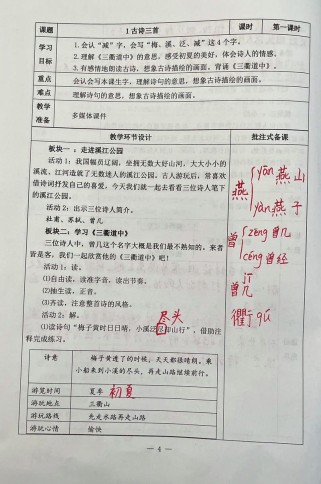 课题 1 古诗三首 课时 第一课时
学习目标 1.会认“减”字，会写“梅、溪、泛、减”这 4 个字。
2.理解《三衢道中》的意思，感受初夏的美好，体会诗人的情感。
3.有感情地朗读古诗，想象古诗描绘的画面。背诵《三衢道中》。
重点 会认会写本课生字，理解诗句的意思，想象古诗描绘的画面。
难点 理解诗句的意思，想象古诗描绘的画面。
教学准备 多媒体课件
教学环节设计 批注式备课
板块一：走进溪江公园
活动 1：我国幅员辽阔，坐拥无数大好山河，大大小小的
溪流、江河造就了无数迷人的溪江公园。古人游玩后，常喜欢
借诗词抒发自己的喜爱，今天我们就一起去看看三位诗人笔下
的溪江公园。
活动 2：出示三位诗人简介。
杜甫、苏轼、曾几
板块二：学习《三衢道中》
三位诗人中，曾几这个名字大概是我们最不熟知的。来者
皆是客，我们一起欣赏他的《三衢道中》吧！
活动 1：读。
(1)自由读，读准字音，读出节奏。
(2)抽生读，正音。
(3)齐读，注意整首诗的风格。
活动 2：解。
尽头
(1)读诗句“梅子黄时日日晴，小溪泛尽却山行”，借助注
释完成练习。
诗意 梅子黄透了的时候，天天都很晴朗，乘
小船来到小溪的尽头，再走山路继续前行。
游览时间 夏季 初夏
游玩地点 三衢山
游玩路线 先走水路再走山路
游玩心情 愉快
燕 yān 燕山
yàn 燕子
曾 zēng 曾几
céng 曾经
曾几 jī
衢 qú
— 4 —